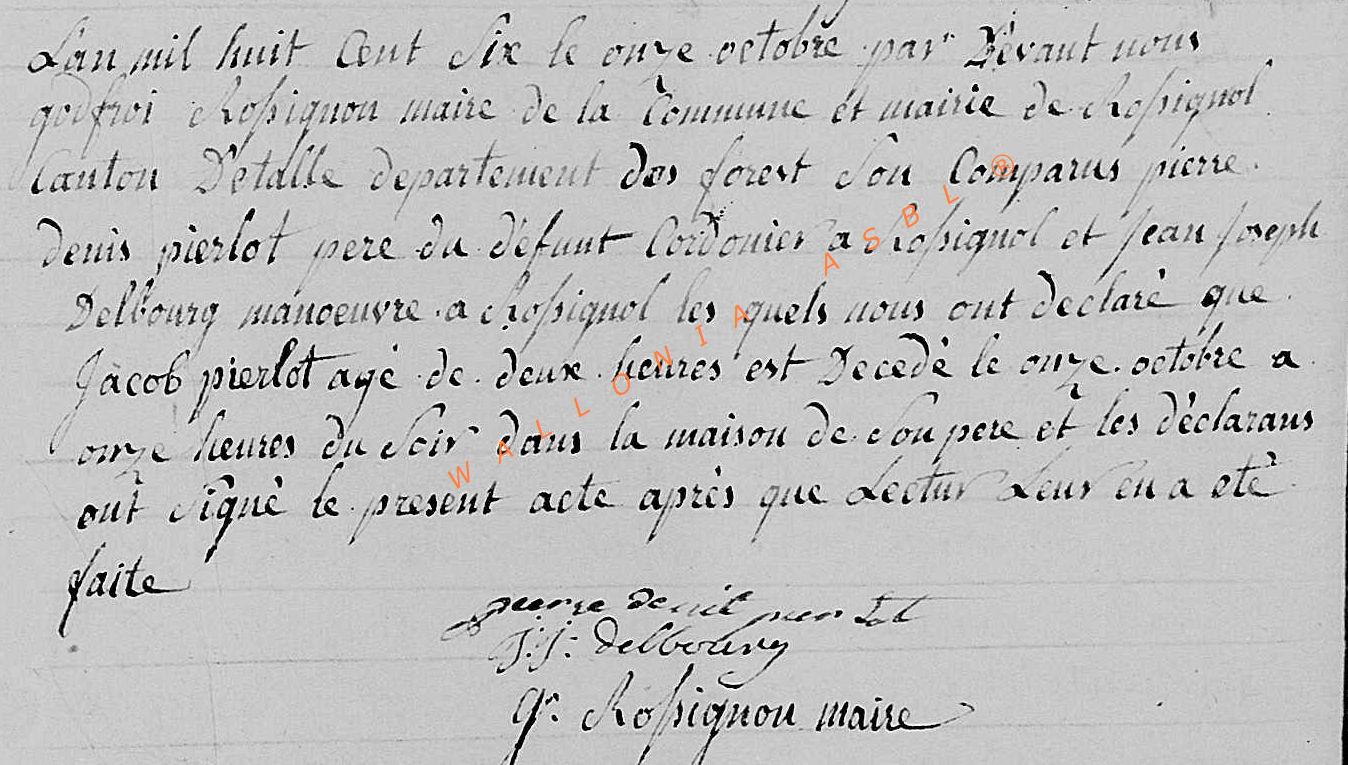 L'an mil huit Cent Six le onze octobre par Dévant nous
godfroi Rossignon maire de la Commune et mairie de Rossignol
Canton D'etalle departement des forest Son Comparus pierre
denis pierlot pere du défunt Cordonier a Rossignol et Jean Joseph
Delbourg manoeuvre a Rossignol les quels nous ont declaré que
Jacob pierlot agé de deux heures est Decedé le onze octobre a
onze heures du Soir dans la maison de Son pere et les déclarans
ont Signé le present acte aprés que Lectur Leur en a eté
faite
pierre denil pierlot
J: J: delbourg
G. Rossignon maire
WALLONIA ASBL ®